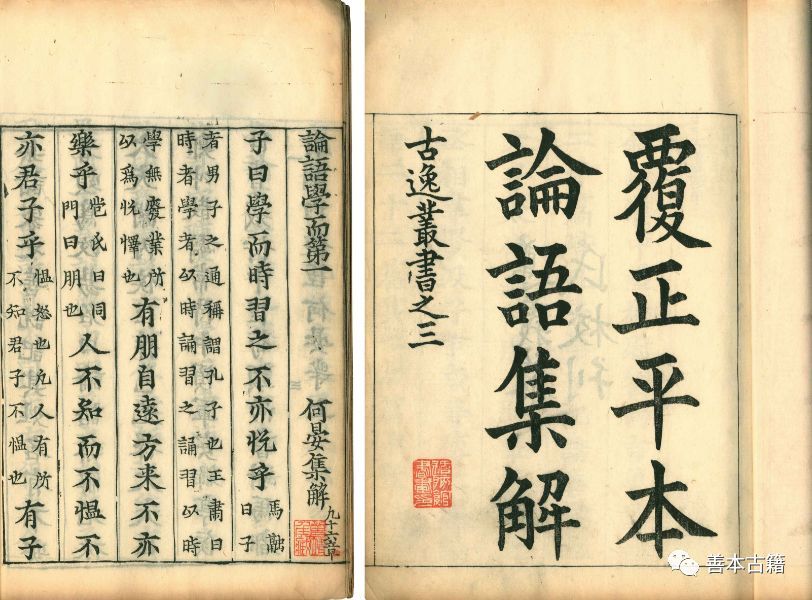 覆正平本
論語集解
古逸叢書之三
論語學而第一 何晏集解
子曰學而時習之不亦悅乎 馬融曰子
者男子之通稱謂孔子也王肅曰
時者學者以時誦習之誦習以時
學無廢業所以為悅懌也 有朋自遠方来不亦
樂乎 苞氏曰同門曰朋也 人不知而不愠不
亦君子乎 愠怒也凢人有所不知君子不愠也 有子
善本古籍